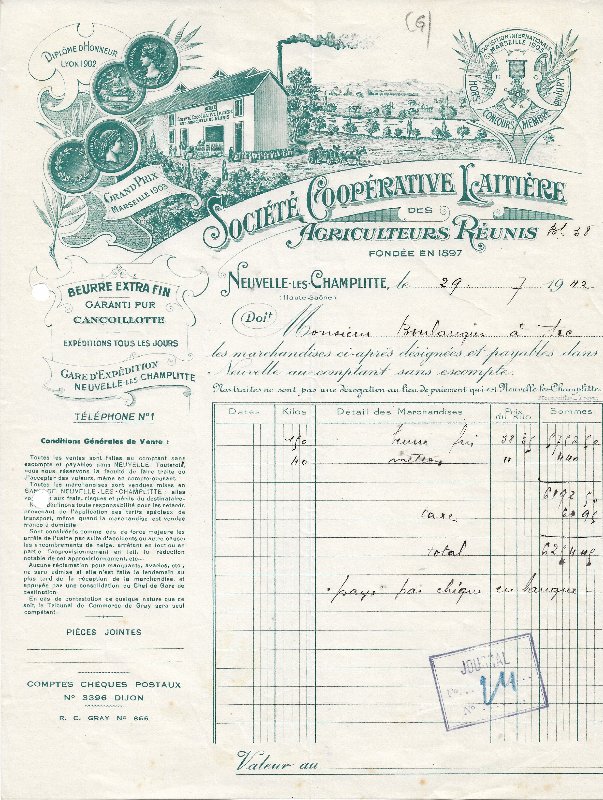 (G)
DIPLÔME D'HONNEUR
LYON 1902
GRAND PRIX
MARSEILLE 1903
EXPOSITION INTERNATIONALE
MARSEILLE 1903
HORS CONCOURS MEMBRE
SOCIÉTÉ COOPÉRATIVE LAITIÈRE
DES
AGRICULTEURS RÉUNIS
FONDÉE EN 1897
NEUVELLE-LES-CHAMPLITTE, le 29 7 1942
(Haute-Saône)
Doit
Monsieur Boulangier à
les marchandises ci-après désignées et payables dans
Neuvelle au comptant sans escompte.
Nos traites ne sont pas une dérogation au lieu de paiement qui est Neuvelle-les-Champlitte
BEURRE EXTRA FIN
GARANTI PUR
CANCOILLOTTE
EXPÉDITIONS TOUS LES JOURS
GARE D'EXPÉDITION
NEUVELLE-LES-CHAMPLITTE
TÉLÉPHONE N° 1
Conditions Générales de Vente :
Toutes les ventes sont faites au comptant sans
escompte et payables à NEUVELLE. Toutefois,
nous nous réservons la faculté de faire traite ou
d'accepter des valeurs, même en compte courant.
Toutes les marchandises sont vendues mises en
GARE DE NEUVELLE-LES-CHAMPLITTE ; elles
aux frais, risques et périls du destinataire.
toute responsabilité pour les retards
provenant de l'application des tarifs spéciaux de
transport, même quand la marchandise est vendue
franco à domicile
Sont considérés comme cas de force majeure les
arrêts de l'usine par suite d'accidents ou autre causes
les encombrements de neige, arrêtant en tout ou en
partie l'approvisionnement en lait, la réduction
notable de cet approvisionnement, etc.
Aucune réclamation pour manquants, avaries, etc.,
ne sera admise si elle n'est faite le lendemain au
plus tard de la réception de la marchandise, et
appuyée par une consolidation du Chef de Gare de
destination
En cas de contestation de quelque nature que ce
soit, le Tribunal de Commerce de Gray sera seul
compétent.
PIÈCES JOINTES
COMPTES CHÈQUES POSTAUX
N° 3396 DIJON
R. C. GRAY N° 866
Dates Kilos Détail des Marchandises Prix du Kilo Sommes
150
40 metton "
taxe
total
payé par chèque en banque
JOURNAL
N°
Valeur au